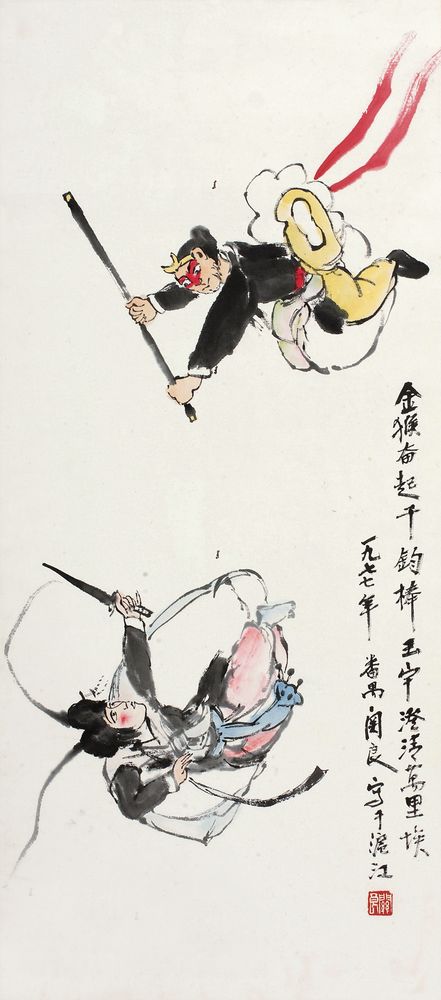 金猴奋起千钧棒玉宇澄清万里埃
一九七七年 番禺関良写于滬江
関良